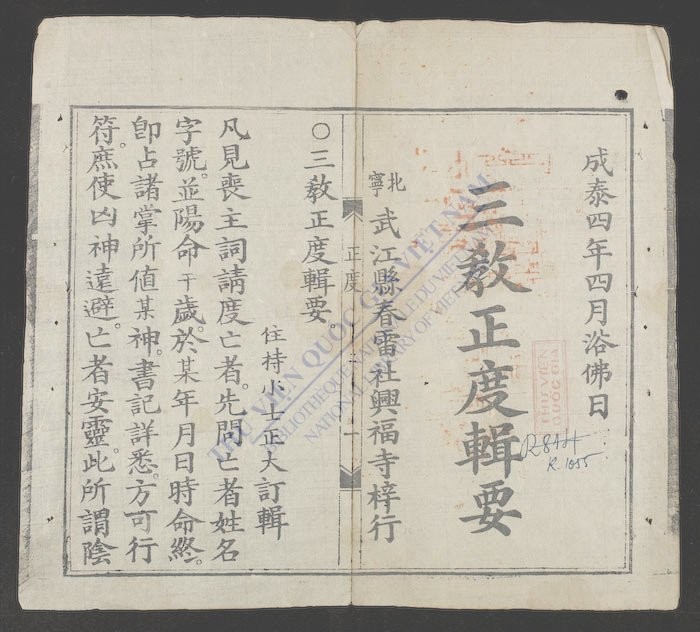 成泰四年四月浴佛日
三教正度輯要
北寧武江縣春雷社興福寺梓行
正度
○三教正度輯要。
住持小士正大訂輯
凡見喪主詞請度亡者。先問亡者姓名
字號。並陽命干歲。於某年月日時命終。
卽占諸掌所值某神。書記詳悉。方可行
符。庶使凶神遠避。亡者安靈。此所謂陰
THƯ VIỆN QUỐC GIA VIỆT NAM
BIBLIOTHEQUE NATIONALE DU VIETNAM
NATIONAL LIBRARY OF VIETNAM
THƯ VIỆN
QUỐC GIA
R.844
R.1055